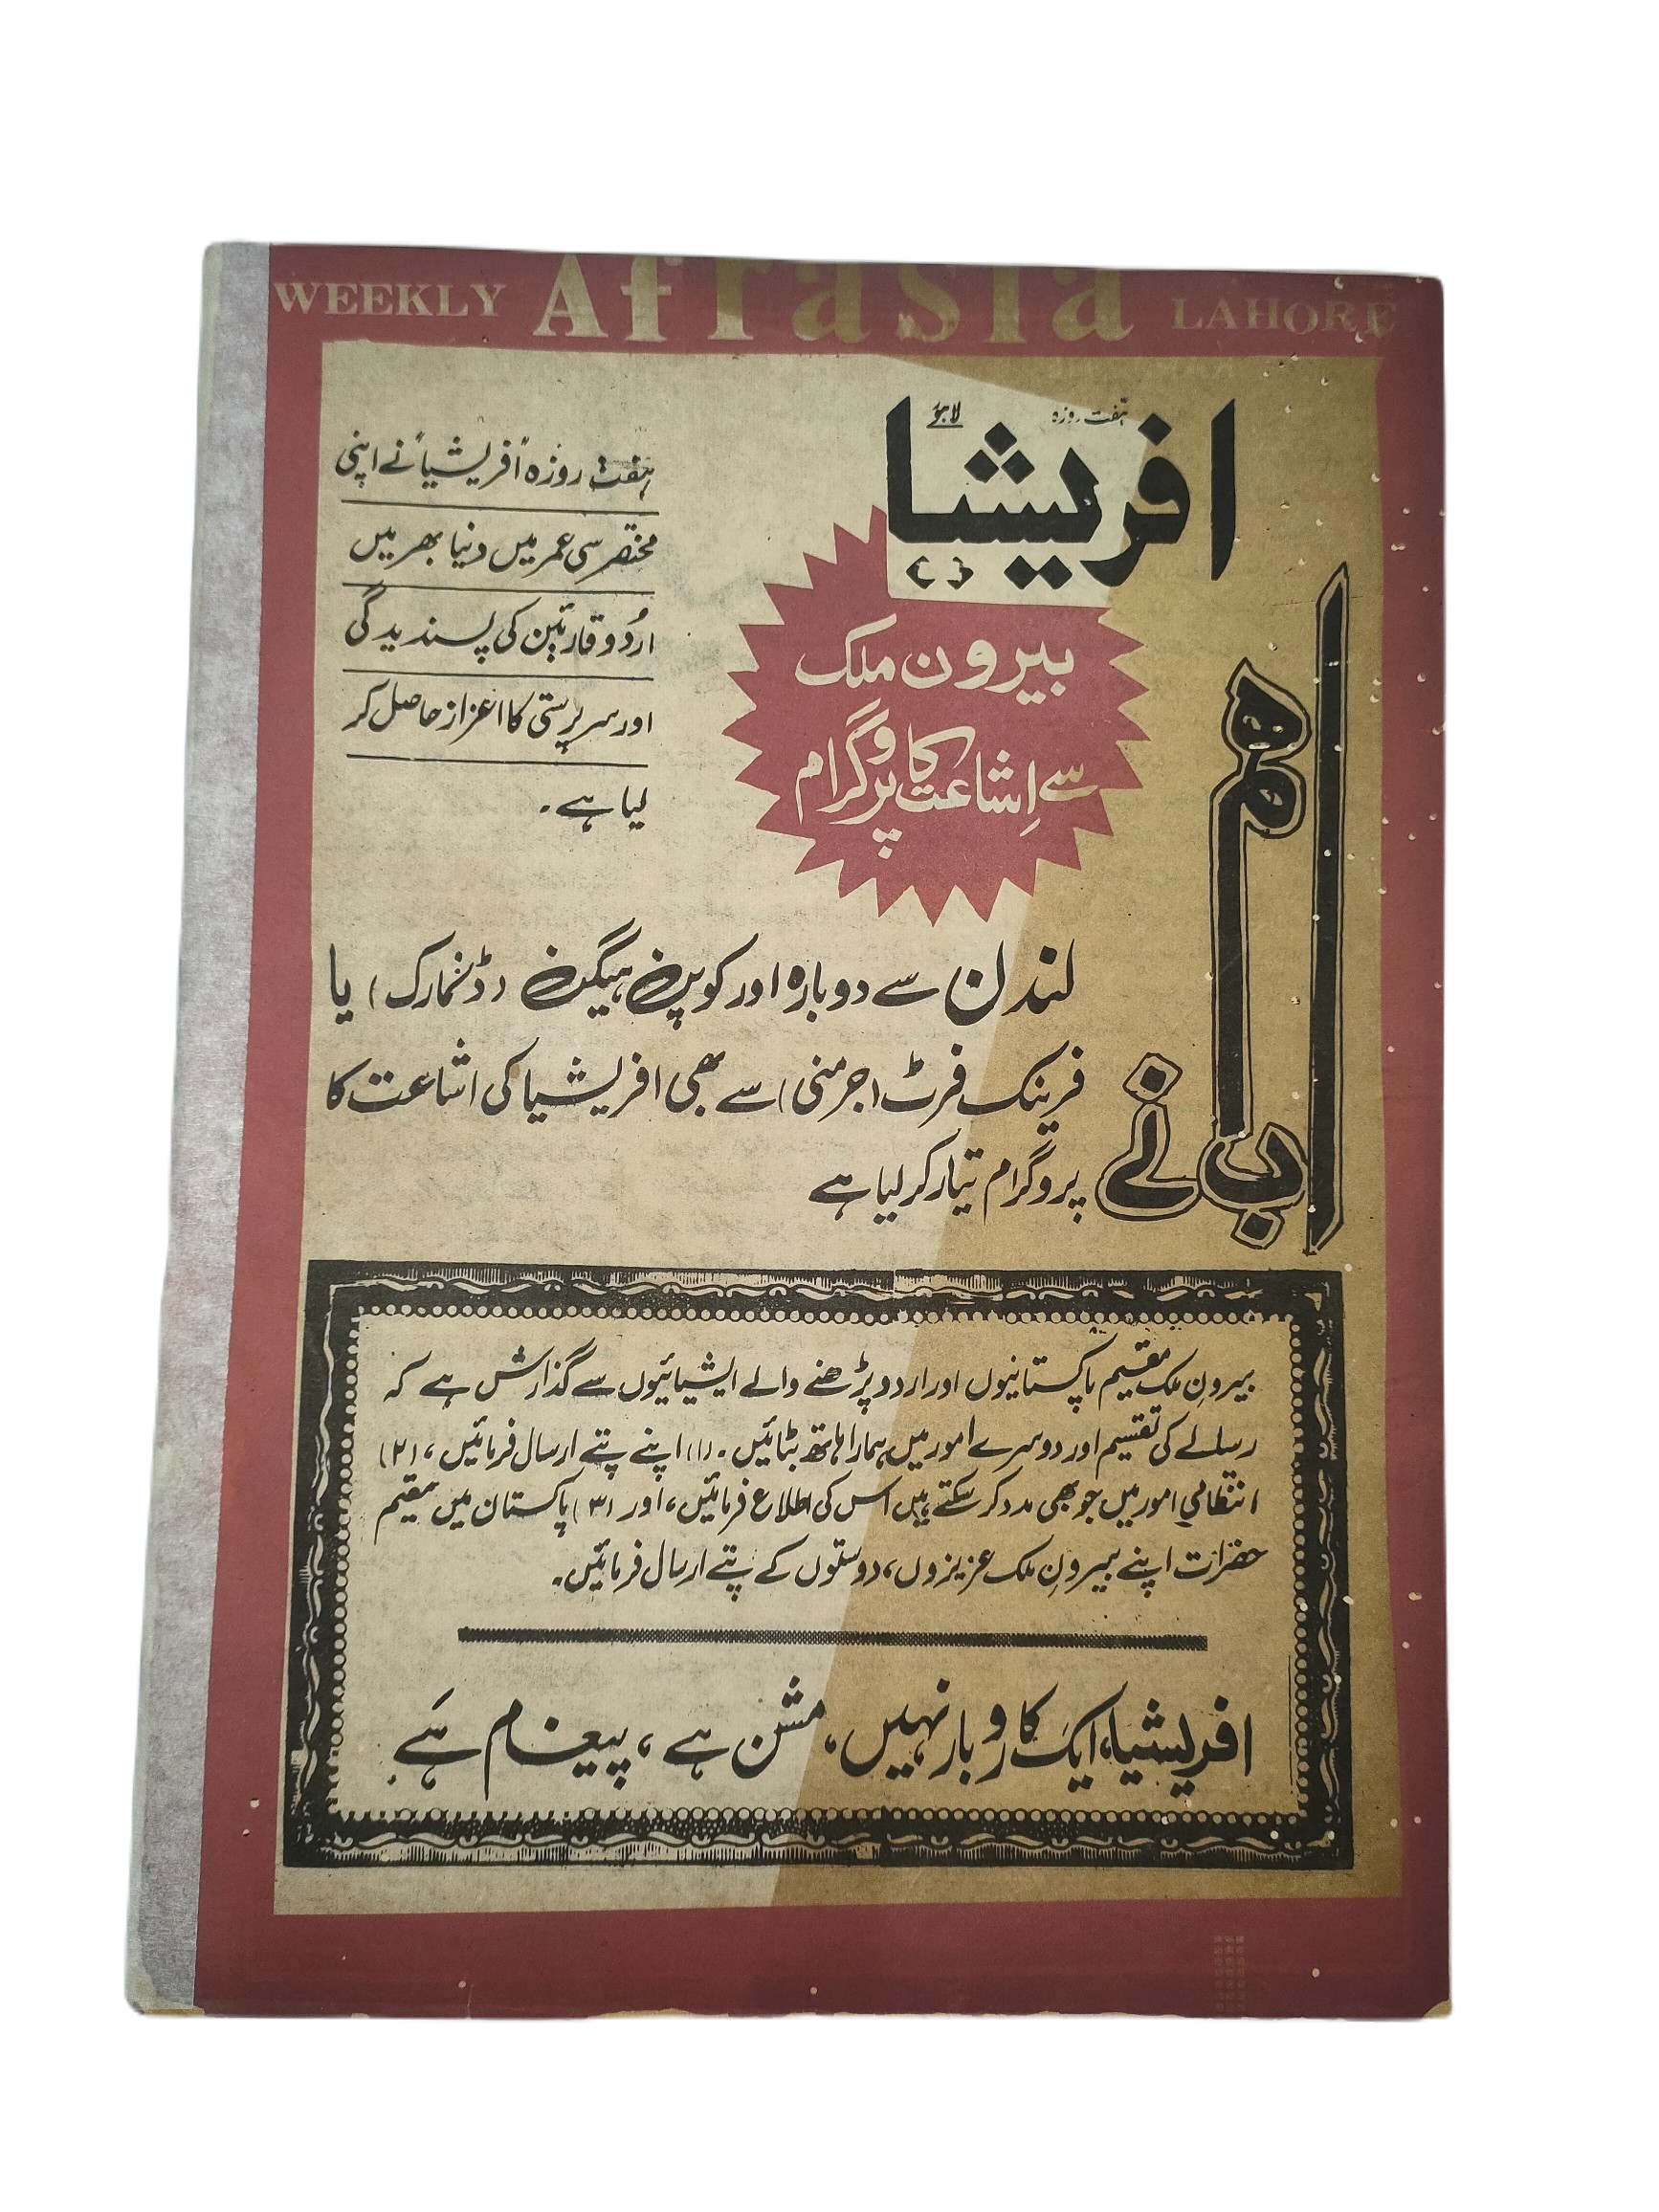 WEEKLY Afrasia LAHORE
ہفت روزہ لاہور
افریشیا
بیرون ملک
سے اِشاعت کا پروگرام
ہفت روزہ "افریشیا" نے اپنی
مختصر سی عمر میں دنیا بھر میں
اردو قارئین کی پسندیدگی
اور سرپرستی کا اعزاز حاصل کر
لیا ہے۔
اب ہم نے
لندن سے دوبارہ اور کوپن ہیگن (ڈنمارک) یا
فرینک فرٹ (جرمنی) سے بھی افریشیا کی اشاعت کا
پروگرام تیار کر لیا ہے
بیرونِ ملک مقیم پاکستانیوں اور اردو پڑھنے والے ایشیائیوں سے گذارش ہے کہ
رسالے کی تقسیم اور دوسرے امور میں ہمارا ہاتھ بٹائیں۔ (۱) اپنے پتے ارسال فرمائیں، (۲)
انتظامی امور میں جو بھی مدد کر سکتے ہیں اس کی اطلاع فرمائیں، اور (۳) پاکستان میں مقیم
حضرات اپنے بیرونِ ملک عزیزوں، دوستوں کے پتے ارسال فرمائیں۔
افریشیا، ایک کاروبار نہیں، مشن ہے، پیغام ہے